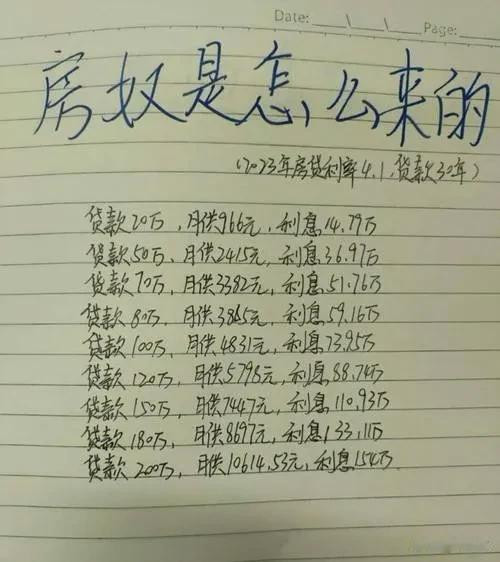 Date: \ \ Page:
房奴是怎么来的
(2023年房贷利率4.1,贷款30年)
贷款20万,月供966元,利息14.79万
贷款50万,月供2415元,利息36.97万
贷款70万,月供3382元,利息51.76万
贷款80万,月供3865元,利息59.16万
贷款100万,月供4831元,利息73.95万
贷款120万,月供5798元,利息88.74万
贷款150万,月供7447元,利息110.93万
贷款180万,月供8697元,利息133.11万
贷款200万,月供10614.53元,利息154万